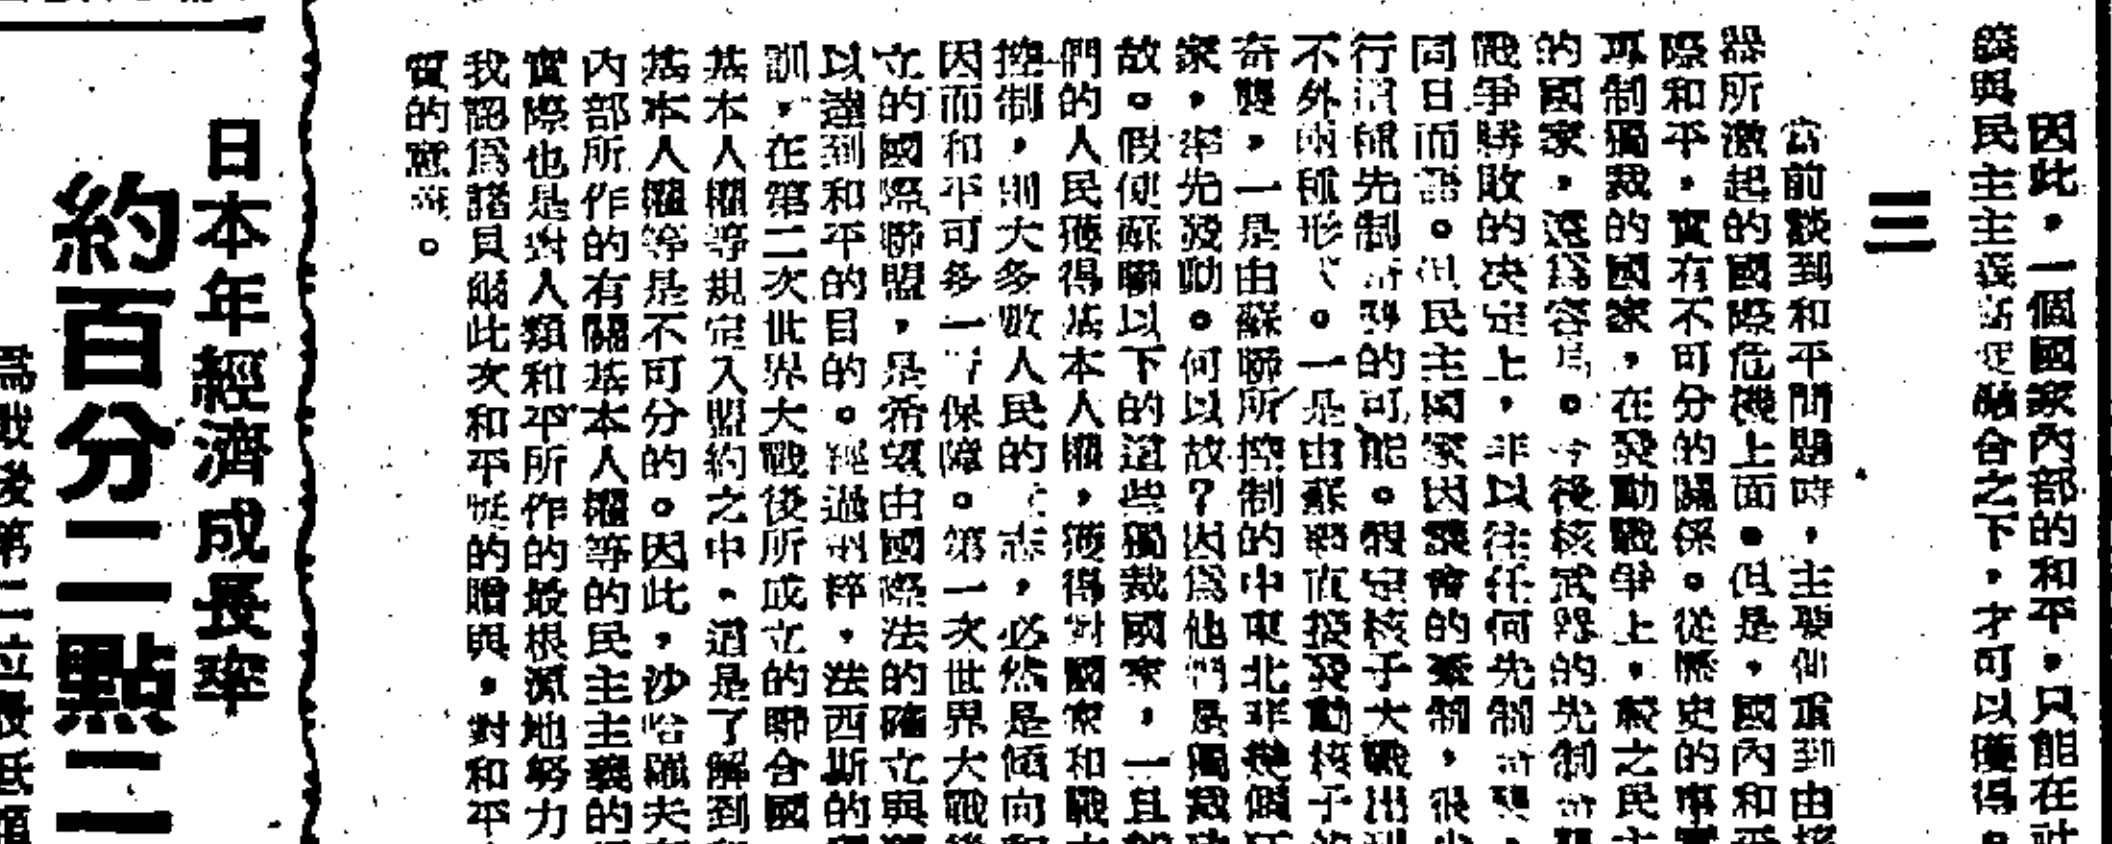 因此，一個國家內部的和平，只能在社
義與民主主義 融合之下，才可以獲得。
三
當前談到和平問題時，主要側重到由核
器所激起的國際危機上面。但是，國內和平
際和平，實有不可分的關係。從歷史的事實
專制獨裁的國家，在發動戰爭上，較之民主
的國家，遠爲容易。今後核武器的先制奇襲
戰爭勝敗的决定上，非以往任何先制奇襲，
同日而語。但民主國家因議會的牽制，很少
行這種先制奇襲的可能。假定核子大戰出到
不外兩種形式。一是由蘇聯直接發動核子
奇襲，一是由蘇聯所控制的中東北非幾個
家，率先發動。何以故？因爲他們是獨裁
故。假使蘇聯以下的這些獨裁國家，一旦
們的人民獲得基本人權，獲得對國家和戰
控制，則大多數人民的 志，必然是傾向和
因而和平可多一 保障。第一次世界大戰後
立的國際聯盟，是希望由國際法的確立與
以達到和平的目的。經過納粹，法西斯的
訓，在第二次世界大戰後所成立的聯合國
基本人權等規定入盟約之中。這是了解到和
基本人權等是不可分的。因此，沙哈羅夫在
內部所作的有關基本人權等的民主主義的
實際也是對人類和平所作的最根源地努力
我認爲諾貝爾此次和平奬的贈與，對和平
質的意義。
日本年經濟成長率
約百分二點二
爲戰後第二位最低